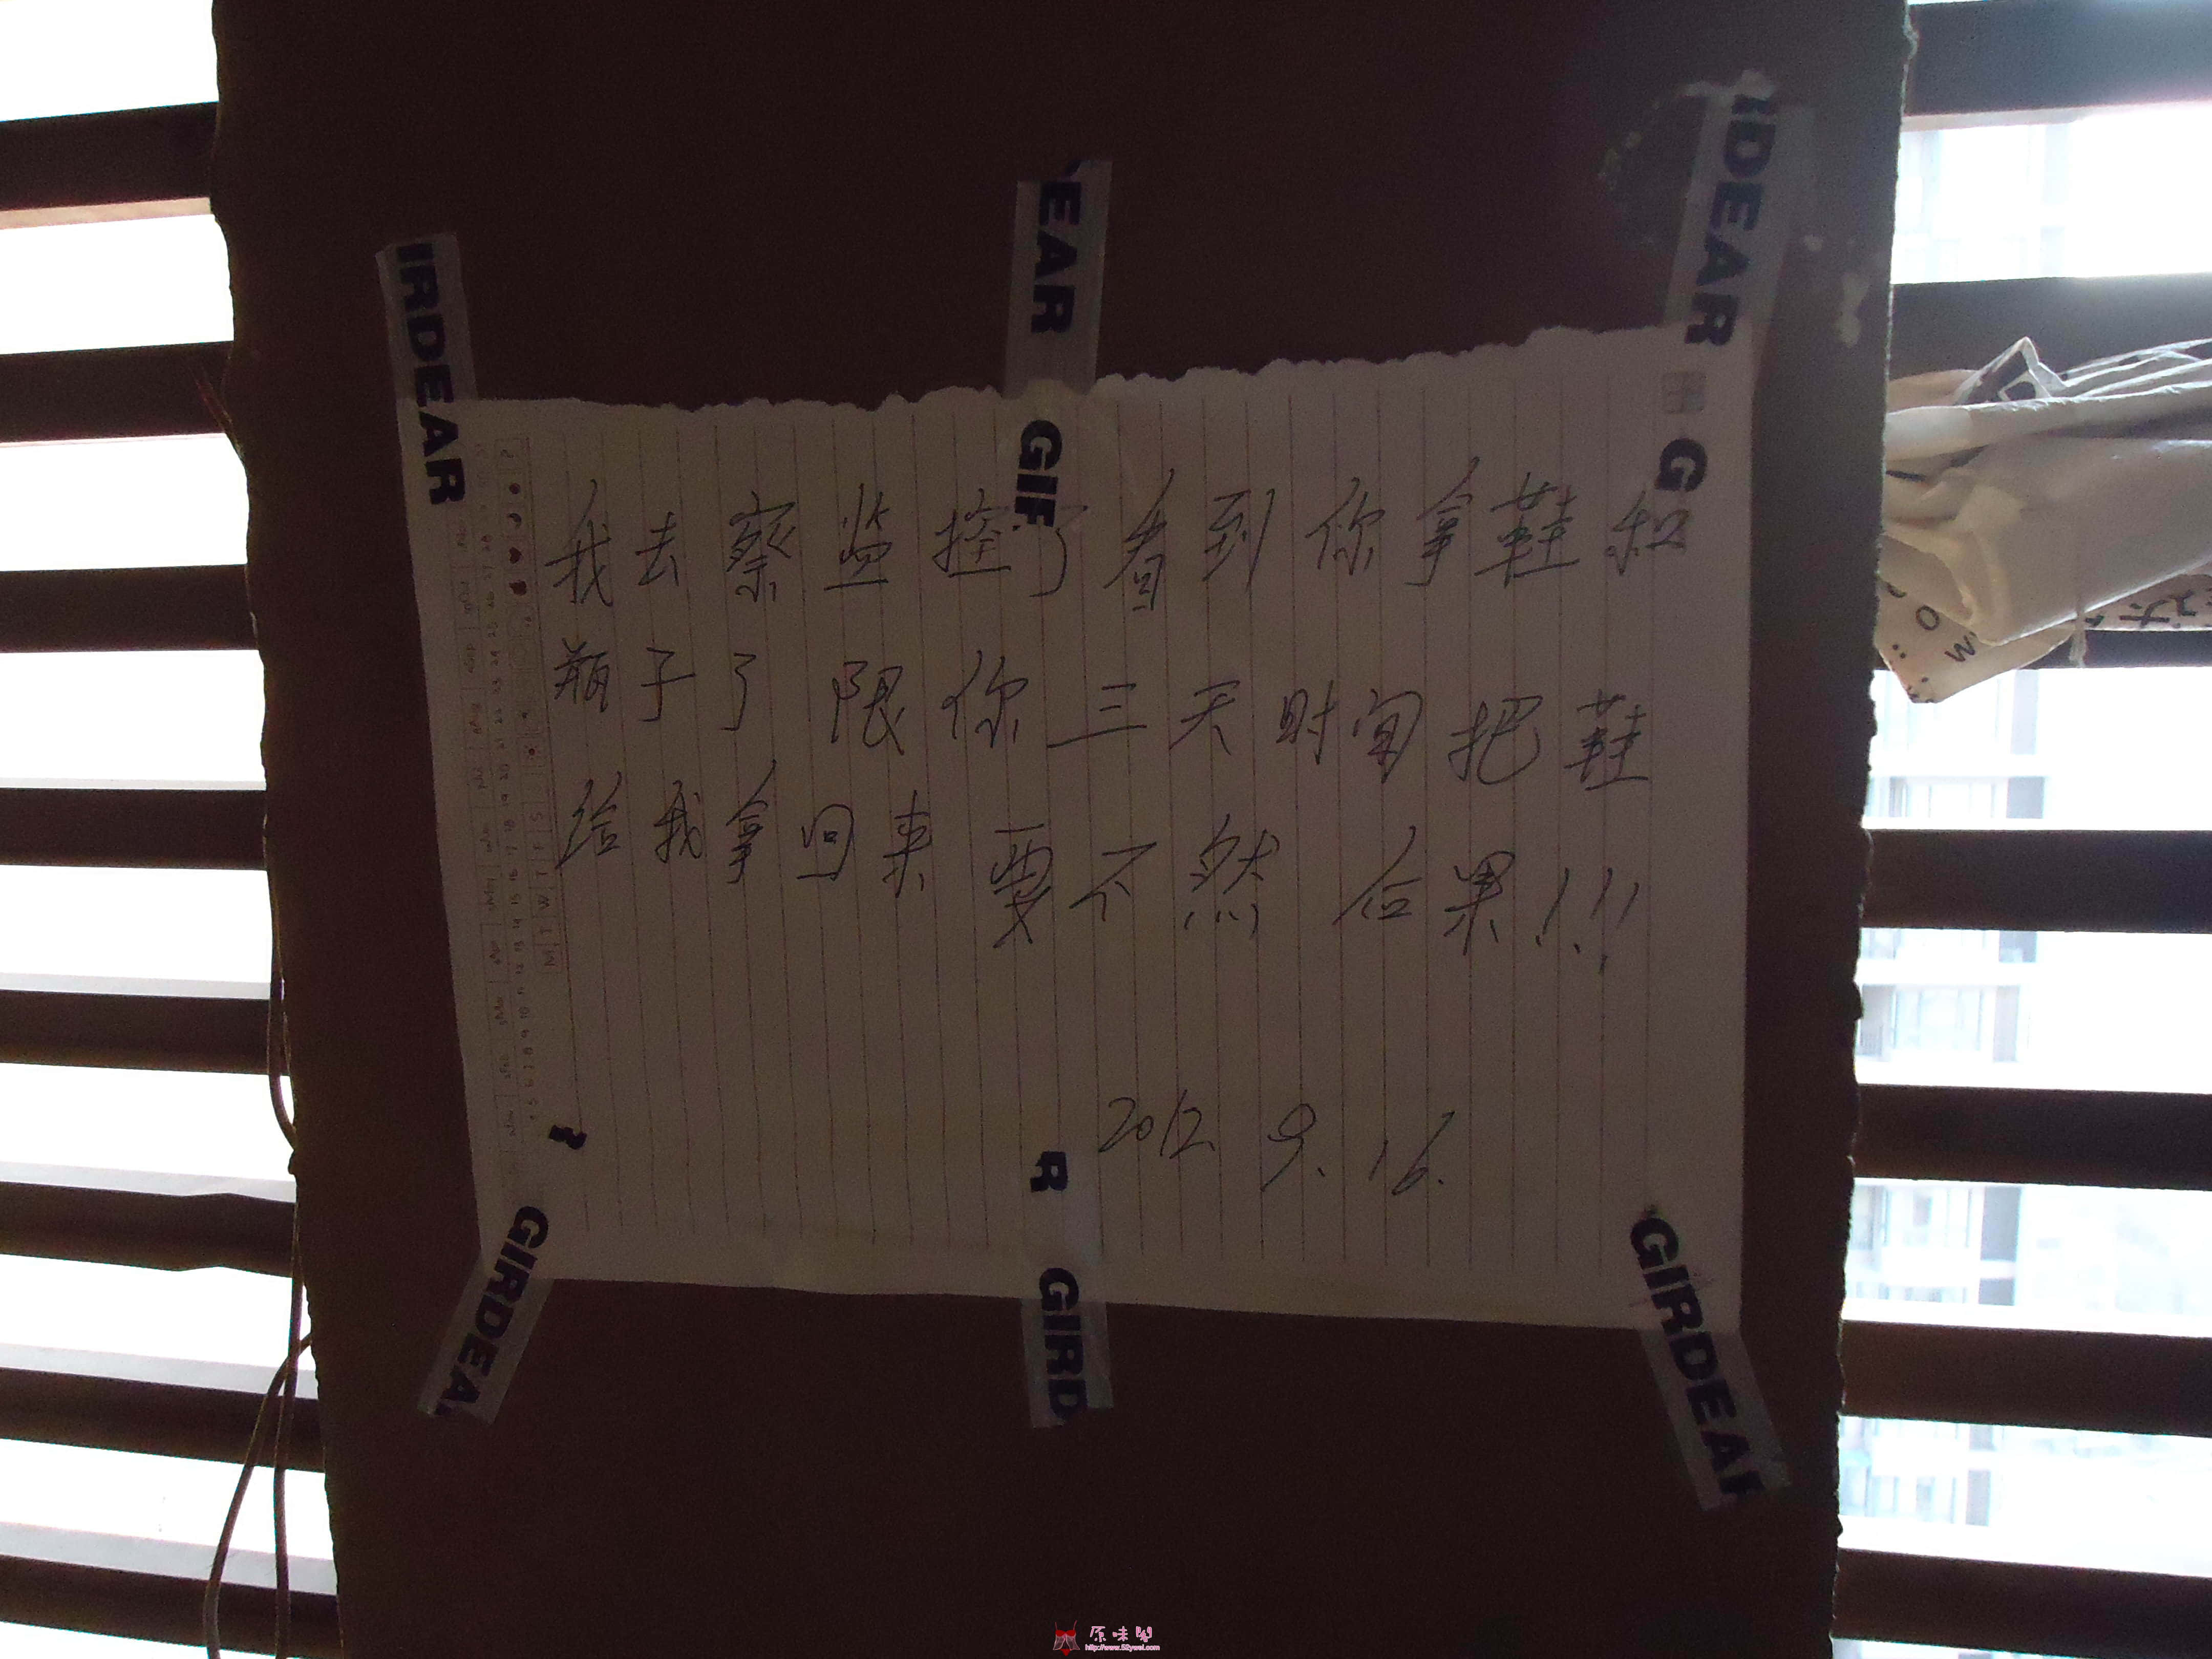 我去察监控了看到你拿鞋和
瓶子了 限你三天时间把鞋
给我拿回来 要不然 后果!!!
2012. 9. 16.
IRDEAR
EAR
GIF
RDEAR
G
M T W T F S
R
GIRDEAR
GIRD
GIRDEAR
原味
http://www.52ywei.com